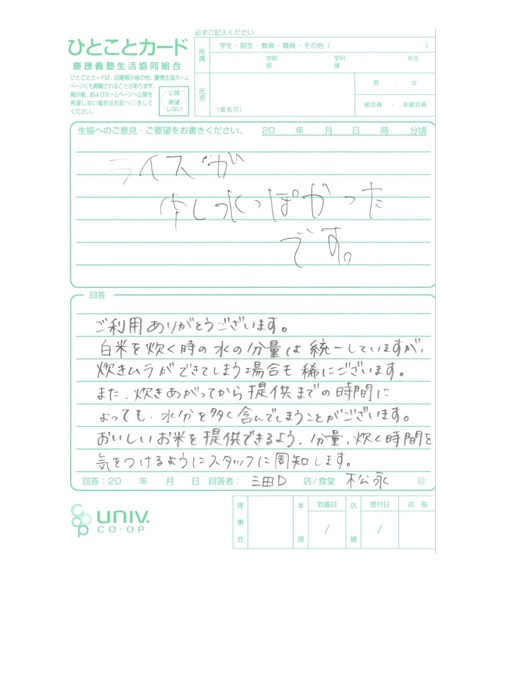 必ずご記入ください
ひとことカード
慶應義塾生活協同組合
ひとことカードは、店頭掲示板の他、慶應生協ホーム
ページにも掲載されることがあります。
掲示板、およびホームページへ公開を
希望しない場合は右記へ○をして
ください。
公開
希望
しない
所属
学生・院生・教員・職員・その他（　　　）
学部　学科　年生
部　課
氏名
（匿名可）
男 ・ 女
組合員 ・ 非組合員
生協へのご意見・ご要望をお書きください。 20　年　月　日　時　分頃
ライスが
少し水っぽかった
です。
回答
ご利用ありがとうございます。
白米を炊く時の水の分量は統一していますが、
炊きムラができてしまう場合も稀にございます。
また、炊きあがってから提供までの時間に
よっても、水分を多く含んでしまうことがございます。
おいしいお米を提供できるよう、分量、炊く時間を
気をつけるようにスタッフに周知します。
回答：20　年　月　日 回答者： 三田D 店/食堂 松永 ㊞
coop UNIV.
CO-OP
理事会
本部
到着日
/
店舗
受付日
/
店長